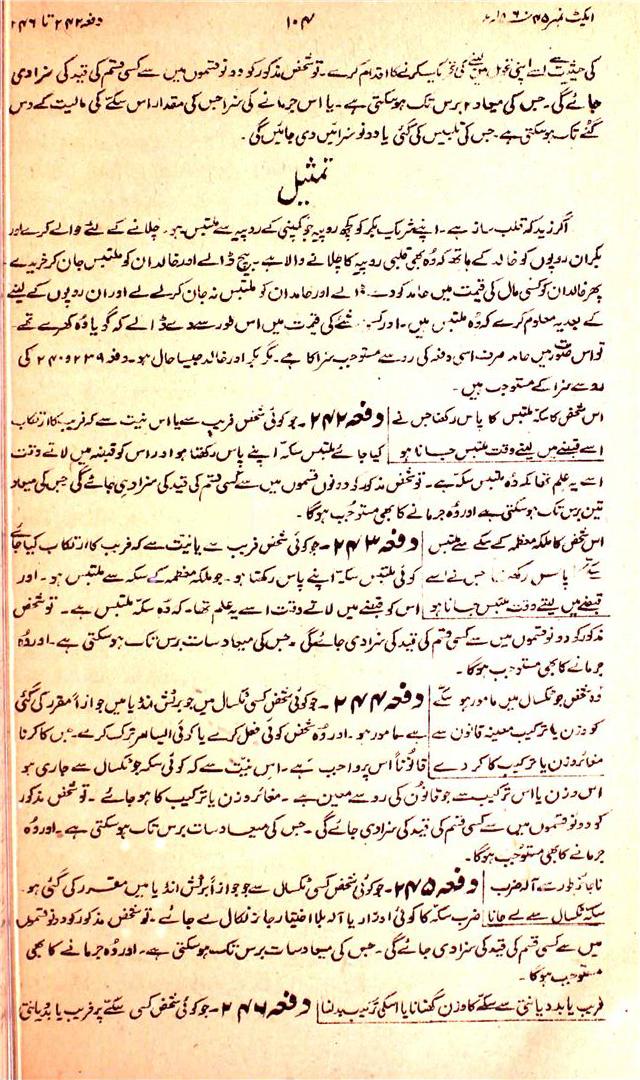 ایکٹ نمبر ۴۵ ۱۸۶۰ء ۱۰۴ دفعہ ۲۴۲ تا ۲۴۶
کی حیثیت سے اسے اپنی تحویل میں لینے کی تحریک کرنے کا اقدام کرے۔ تو شخص مذکور کو دونو قسموں میں سے کسی قسم کی قید کی سزا دی
جائے گی۔ جس کی میعاد ۲ برس تک ہوسکتی ہے۔ یا اس جرمانے کی سزا جس کی مقدار اس سکّے کی مالیت کے دس
گُنے تک ہوسکتی ہے جس کی تلبیس کی گئی یا دونو سزائیں دی جائیں گی۔
تمثیل
اگر زید کہ قلب ساز ہے۔ اپنے شریک بکر کو کچھ روپیہ جو کمپنی کے روپیہ سے ملتبس ہو۔ چلانے کے لئے حوالے کرے اور
بکر ان روپوں کو خالد کے ہاتھ کہ وُہ بھی قلبی روپیہ کا چلانے والا ہے۔ بیچ ڈالے اور خالد ان کو ملتبس جان کر خریدے
پھر خالد ان کو کسی مال کی قیمت میں حامد کو دے ڈالے اور حامد ان کو ملتبس نہ جان کر لے لے اور ان روپوں کے لینے
کے بعد یہ معلوم کرے کہ وُہ ملتبس ہیں۔ اور کسی شئے کی قیمت میں اس طور سے دے ڈالے کہ گویا وُہ کھرے تھے
تو اس صورت میں حامد صرف اسی دفعہ کی رو سے مستوجب سزا کا ہے۔ مگر بکر اور خالد جیسا حال ہو۔ دفعہ ۲۳۹ و ۲۴۰ کی
رو سے سزا کے مستوجب ہیں۔
اس شخص کا سکہ ملتبس کا پاس رکھنا جس نے دفعہ ۲۴۲۔ جو کوئی شخص فریب سے یا اس نیت سے کہ فریب کا ارتکاب
اسے قبضے میں لیتے وقت ملتبس جانا ہو کیا جائے ملتبس سکّہ اپنے پاس رکھتا ہو اور اس کو قبضہ میں لاتے وقت
اسے یہ علم تھا کہ وُہ ملتبس سکّہ ہے۔ تو شخص مذکور کو دونوں قسموں میں سے کسی قسم کی قید کی سزا دی جائے گی جس کی میعاد
تین برس تک ہوسکتی ہے اور وُہ جرمانے کا بھی مستوجب ہوگا۔
اس شخص کا ملکہ معظمہ کے سکے سے ملتبس دفعہ ۲۴۳۔ جو کوئی شخص فریب سے یا نیت سے کہ فریب کا ارتکاب کیا جائے
سکے پاس رکھنا جس نے اسے کوئی ملتبس سکّہ اپنے پاس رکھتا ہو۔ جو ملکہ معظمہ کے سکہ سے ملتبس ہو۔ اور
قبضے میں لیتے وقت ملتبس جانا ہو اس کو قبضے میں لاتے وقت اسے یہ علم تھا۔ کہ وُہ سکّہ ملتبس ہے۔ تو شخص
مذکور کو دونو قسموں میں سے کسی قسم کی قید کی سزا دی جائے گی۔ جس کی میعاد سات برس تک ہوسکتی ہے۔ اور وُہ
جرمانے کا بھی مستوجب ہوگا۔
وُہ شخص جو ٹکسال میں مامور ہو سکّے دفعہ ۲۴۴۔ جو کوئی شخص کسی ٹکسال میں جو برٹش انڈیا میں جوازاً مقرر کی گئی
کو وزن یا ترکیب معینہ قانون سے ہے مامور ہو۔ اور وُہ شخص کوئی فعل کرے یا کوئی ایسا امر ترک کرے۔ جس کا کرنا
مغائر وزن یا ترکیب کا کر دے قانوناً اس پر واجب ہے۔ اس نیت سے کہ کوئی سکہ جو ٹکسال سے جاری ہو
اس وزن یا اس ترکیب سے جو قانون کی رو سے معین ہے۔ مغائر وزن یا ترکیب کا ہو جائے۔ تو شخص مذکور
کو دونو قسموں میں سے کسی قسم کی قید کی سزا دی جائے گی۔ جس کی میعاد سات برس تک ہوسکتی ہے۔ اور وُہ
جرمانے کا بھی مستوجب ہوگا۔
ناجائز طور سے آلہ ضرب دفعہ ۲۴۵۔ جو کوئی شخص کسی ٹکسال سے جو جوازاً برٹش انڈیا میں مقرر کی گئی ہو۔
سکہ ٹکسال سے لے جانا ضرب سکّہ کا کوئی اوزار یا آلہ بلا اختیار جائز نکال لے جائے۔ تو شخص مذکور کو دونو قسموں
میں سے کسی قسم کی قید کی سزا دی جائے گی۔ جس کی میعاد سات برس تک ہوسکتی ہے۔ اور وُہ جرمانے کا بھی
مستوجب ہوگا۔
فریب یا بددیانتی سے سکّے کا وزن گھٹانا یا اسکی ترکیب بدلنا دفعہ ۲۴۶۔ جو کوئی شخص کسی سکّے پر فریب یا بددیانتی